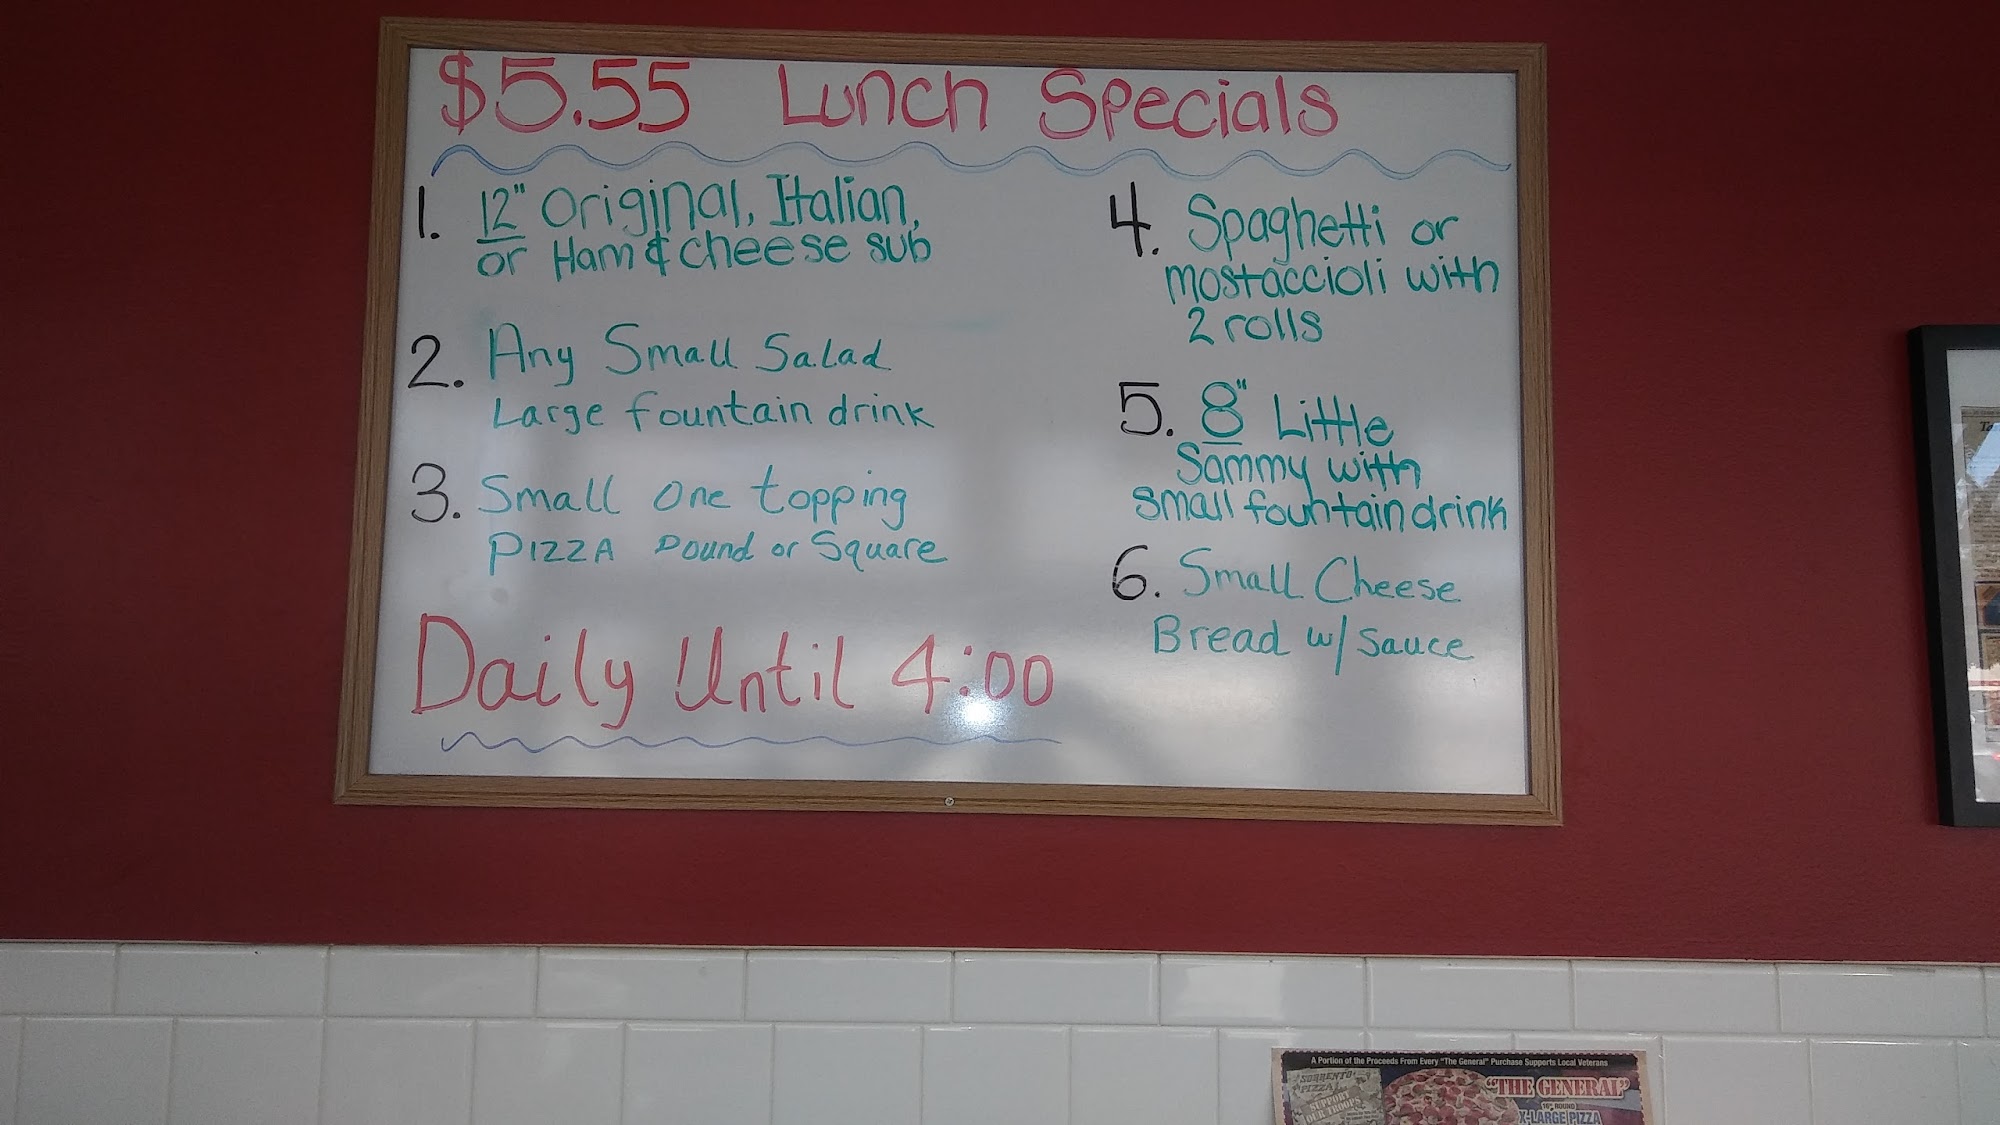 $5.55 Lunch Specials
1. 12" Original, Italian,
or Ham & cheese sub
2. Any Small Salad
Large fountain drink
3. Small one topping
PIZZA Dound or Square
Daily Until 4:00
4. Spaghetti or
mostaccioli with
2 rolls
5. 8" Little
Sammy with
small fountain drink
6. Small Cheese
Bread w/ sauce
A Portion of the Proceeds From Every "The General" Purchase Supports Local Veterans
SORRENTO
PIZZA
SUPPORT
OUR TROOPS
"THE GENERAL"
16" ROUND
X-LARGE PIZZA